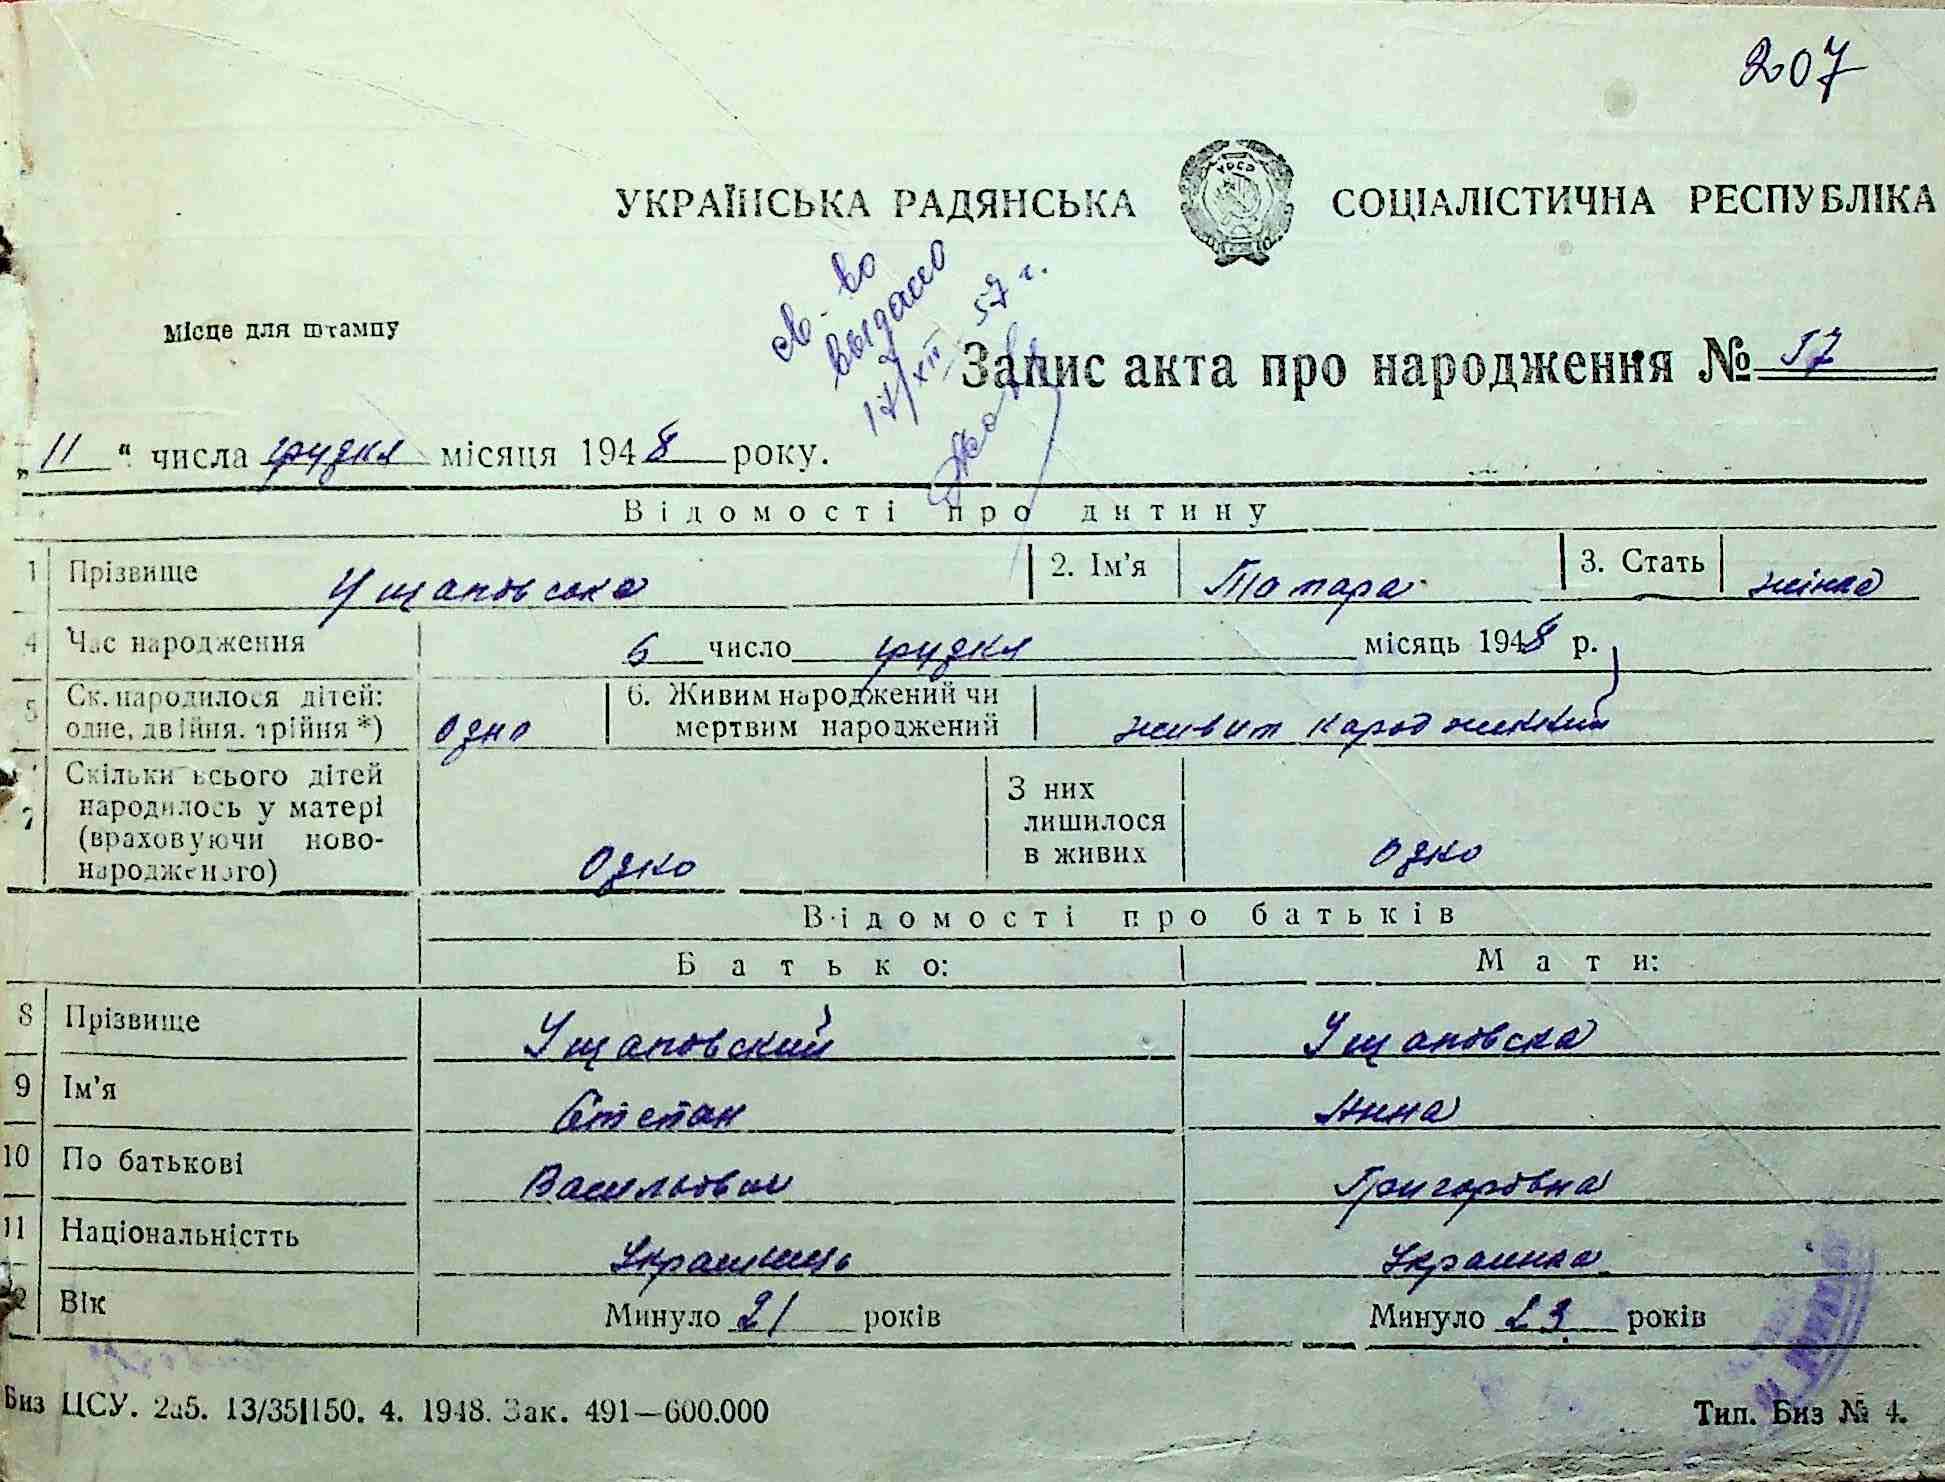 207
УКРАЇНСЬКА РАДЯНСЬКА СОЦІАЛІСТИЧНА РЕСПУБЛІКА
УРСР
св-во
выдано
17/XII 57 г.
Місце для штампу
Запис акта про народження № 57
„11“ числа грудня місяця 1948 року.
Відомості про дитину
1 Прізвище Ущаповська 2. Ім'я Тамара 3. Стать жінка
4 Час народження 6 число грудня місяць 1948 р.
5 Ск. народилося дітей: одне, двійня, трійня *) одно 6. Живим народжений чи мертвим народжений живим народжений
7 Скільки всього дітей народилось у матері (враховуючи новонародженого) одно З них лишилося в живих одно
Відомості про батьків
Батько: Мати:
8 Прізвище Ущаповский Ущаповска
9 Ім'я Степан Анна
10 По батькові Васильович Григоровна
11 Національністть Украинець Украинка
12 Вік Минуло 21 років Минуло 23 років
Биз ЦСУ. 2а5. 13/35|150. 4. 1948. Зак. 491—600.000 Тип. Биз № 4.